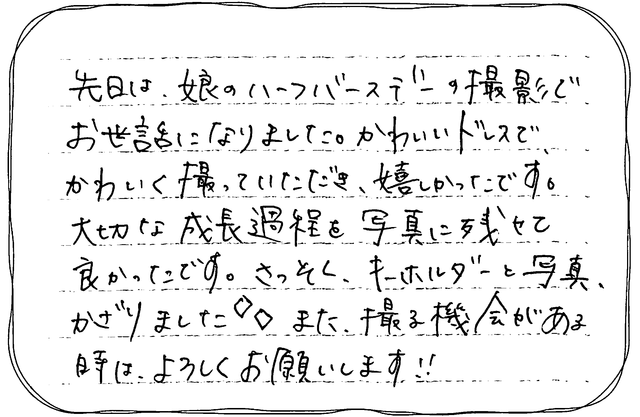 先日は、娘のハーフバースデーの撮影で
お世話になりました。かわいいドレスで、
かわいく撮っていただき、嬉しかったです。
大切な成長過程を写真に残せて
良かったです。さっそく、キーホルダーと写真、
かざりました◇◇ また、撮る機会がある
時は、よろしくお願いします!!